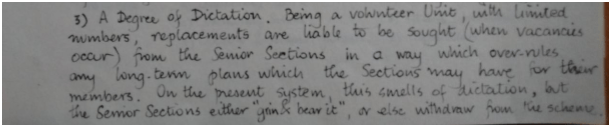 3) A Degree of Dictation. Being a volunteer Unit, with limited
numbers, replacements are liable to be sought (when vacancies
occur) from the Senior Sections in a way which over-rules
any long-term plans which the Sections may have for their
members. On the present system, this smells of dictation, but
the Senior Sections either "grin & bear it", or else withdraw from the scheme.